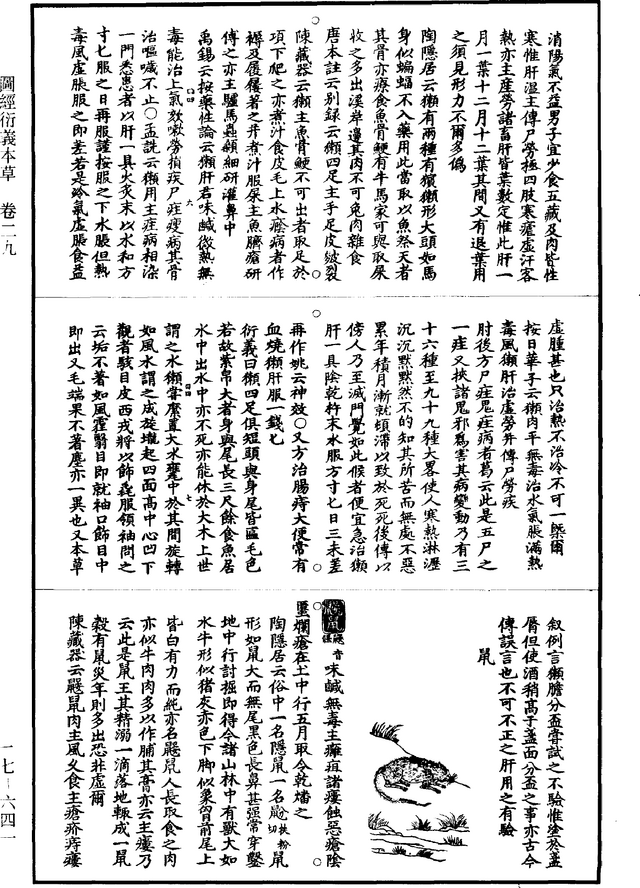 圖經衍義本草　卷二九
消陽氣不益男子宜少食五藏及肉皆性
寒惟肝溫主傳尸勞極四肢寒瘧虛汗客
熱亦主産勞諸畜肝皆葉數定惟此肝一
月一葉十二月十二葉其間又有退葉用
之須見形力不爾多僞
陶隱居云獺有兩種有獱獺形大頭如馬
身似蝙蝠不入藥用此當取以魚祭天者
其骨亦療食魚骨鯁有牛馬家可與取屎
收之多出溪岸邊其肉不可兔肉雜食
唐本註云別錄云獺四足主手足皮皴裂
陳藏器云獺主魚骨鯁不可出者取足於
項下爬之亦煮汁食皮毛上水癊病者作
褥及履屧著之并煮汁服屎主魚臍瘡研
傅之亦主驢馬蟲顙細研灌鼻中
禹錫云按藥性論云獺肝君味鹹微熱無
毒能治上氣欬嗽勞損疾尸疰瘦病其骨
治嘔噦不止○孟詵云獺用主疰病相染
一門悉患者以肝一具火炙末以水和方
寸匕服之日再服謹按服之下水脹但熱
毒風虛脹服之即差若是冷氣虛脹食益
虛腫甚也只治熱不治冷不可一槩爾
按日華子云獺肉平無毒治水氣脹滿熱
毒風獺肝治虛勞并傳尸勞疾
肘後方尸疰鬼疰病者葛云此是五尸之
一疰又挾諸鬼邪爲害其病變動乃有三
十六種至九十九種大畧使人寒熱淋瀝
沉沉黙黙然不的知其所苦而無處不惡
累年積月漸就頓滯以致於死死後傳以
傍人乃至滅門覺如此候者便宜急治獺
肝一具陰乾杵末水服方寸匕日三未差
再作姚云神效○又方治腸痔大便常有
血燒獺肝服一錢匕
衍義曰獺四足俱短頭與身尾皆匾毛色
若故紫帛大者身與尾長三尺餘食魚居
水中出水中亦不死亦能休於大木上世
謂之水獺嘗縻置大水甕中於其間旋轉
如風水謂之成旋壠起四面高中心凹下
觀者駭目皮西戎將以飾毳服領袖問之
云垢不著如風霾翳目即就袖口飾目中
即出又毛端果不著塵亦一異也又本草
敘例言獺膽分盃嘗試之不驗惟塗於盞
脣但使酒稍高于盞面分盃之事亦古今
傳誤言也不可不正之肝用之有驗
鼠
鼴鼠
味鹹無毒主癰疽諸瘻蝕惡瘡陰
䘌爛瘡在土中行五月取令乾燔之
陶隱居云俗中一名隱鼠一名鼢扶粉切鼠
形如鼠大而無尾黑色長鼻甚强常穿鑿
地中行討掘即得今諸山林中有獸大如
水牛形似猪灰赤色下脚似象胷前尾上
皆白有力而鈍亦名鼴鼠人長取食之肉
亦似牛肉肉多以作脯其膏亦云主瘻乃
云此是鼠王其精溺一滴落地輙成一鼠
穀有鼠災年則多出恐非虛爾
陳藏器云鼴鼠肉主風又食主瘡疥痔瘻
一七–六四一